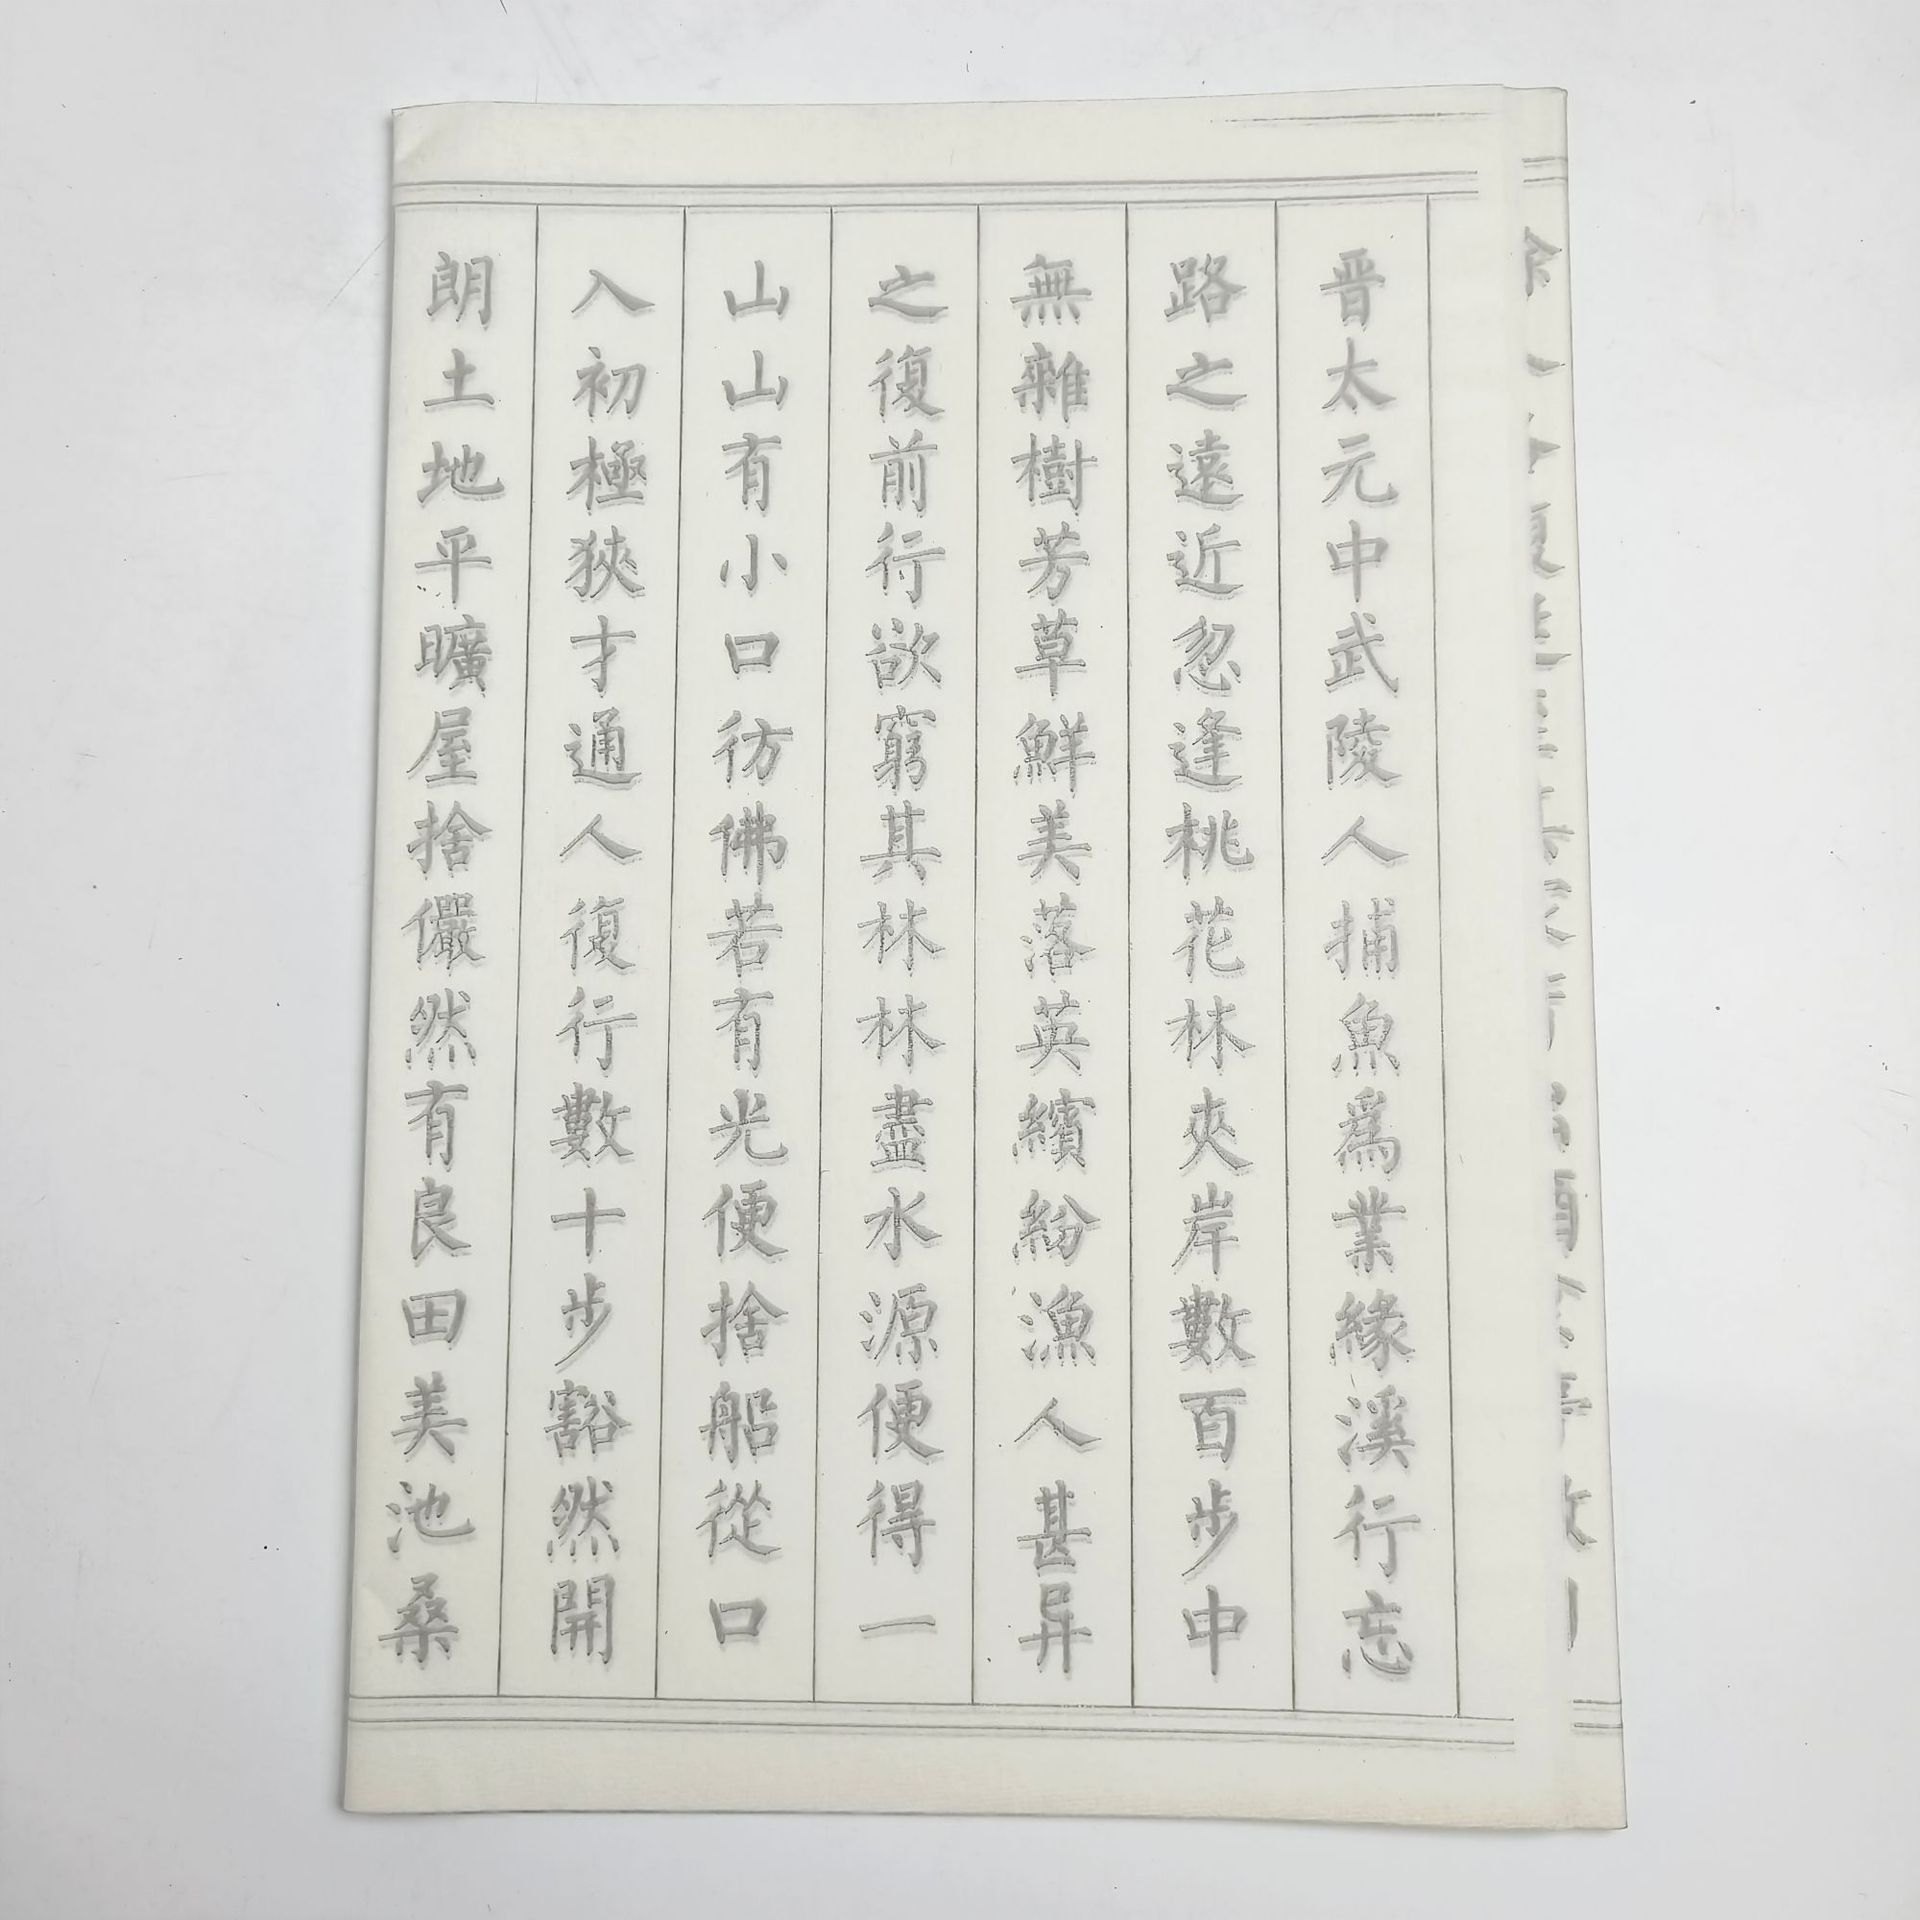 晋太元中武陵人捕魚爲業緣溪行忘
路之遠近忽逢桃花林夾岸數百步中
無雜樹芳草鮮美落英繽紛漁人甚异
之復前行欲窮其林林盡水源便得一
山山有小口彷佛若有光便捨船從口
入初極狹才通人復行數十步豁然開
朗土地平曠屋捨儼然有良田美池桑